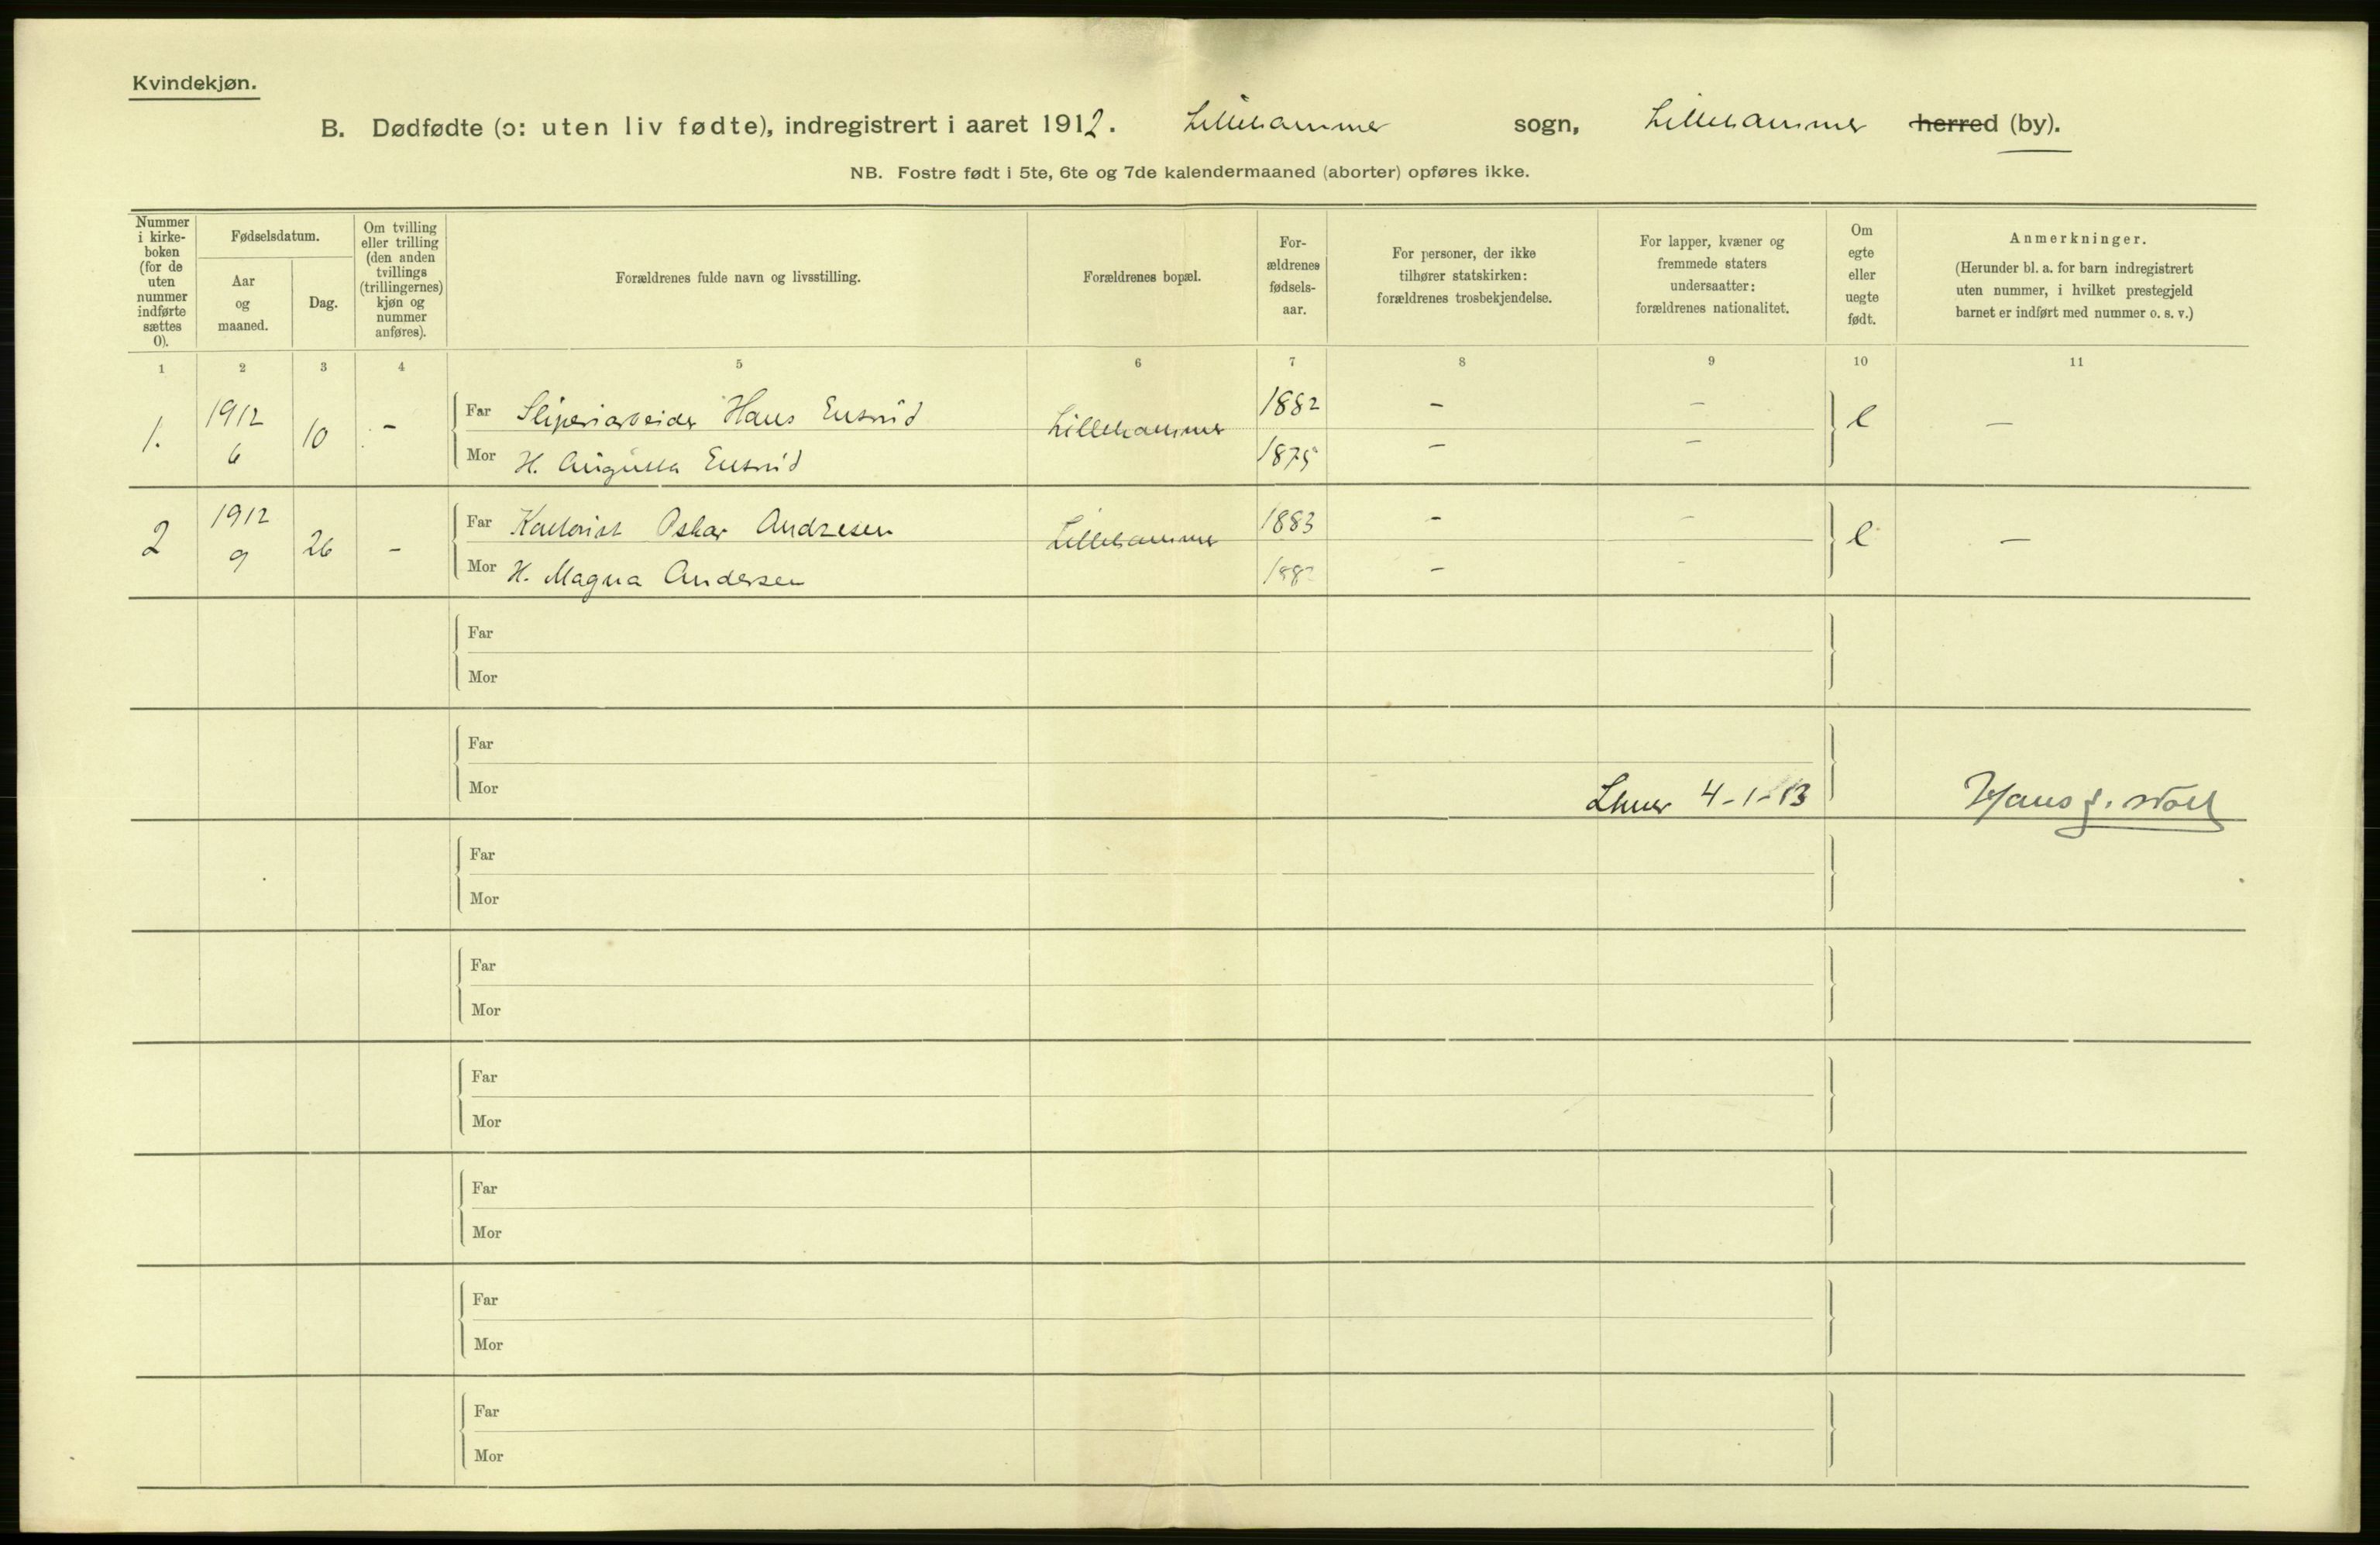 Kvindekjøn.
B. Dødfødte (ɔ: uten liv fødte), indregistrert i aaret 1912. Lillehammer sogn, Lillehammer herred (by).
NB. Fostre født i 5te, 6te og 7de kalendermaaned (aborter) opføres ikke.
Nummer
i kirke-
boken
(for de
uten
nummer
indførte
sættes
0).
Fødselsdatum.
Aar
og
maaned.
Dag.
Om tvilling
eller trilling
(den anden
tvillings
(trillingernes)
kjøn og
nummer
anføres).
Forældrenes fulde navn og livsstilling.
Forældrenes bopæl.
For-
ældrenes
fødsels-
aar.
For personer, der ikke
tilhører statskirken:
forældrenes trosbekjendelse.
For lapper, kvæner og
fremmede staters
undersaatter:
forældrenes nationalitet.
Om
egte
eller
uegte
født.
Anmerkninger.
(Herunder bl. a. for barn indregistrert
uten nummer, i hvilket prestegjeld
barnet er indført med nummer o. s. v.)
1 2 3 4 5 6 7 8 9 10 11
1. 1912 6 10 - Far Sliperiarbeider Hans Lillehammer 1882 - - e -
Mor H. Augusta 1875 - -
2 1912 9 26 - Far Oskar Andresen Lillehammer 1883 - - e -
Mor H. Magna Andersen - -
Far
Mor
Far
Mor
Lhmer 4-1-13 Hans J.
Far
Mor
Far
Mor
Far
Mor
Far
Mor
Far
Mor
Far
Mor